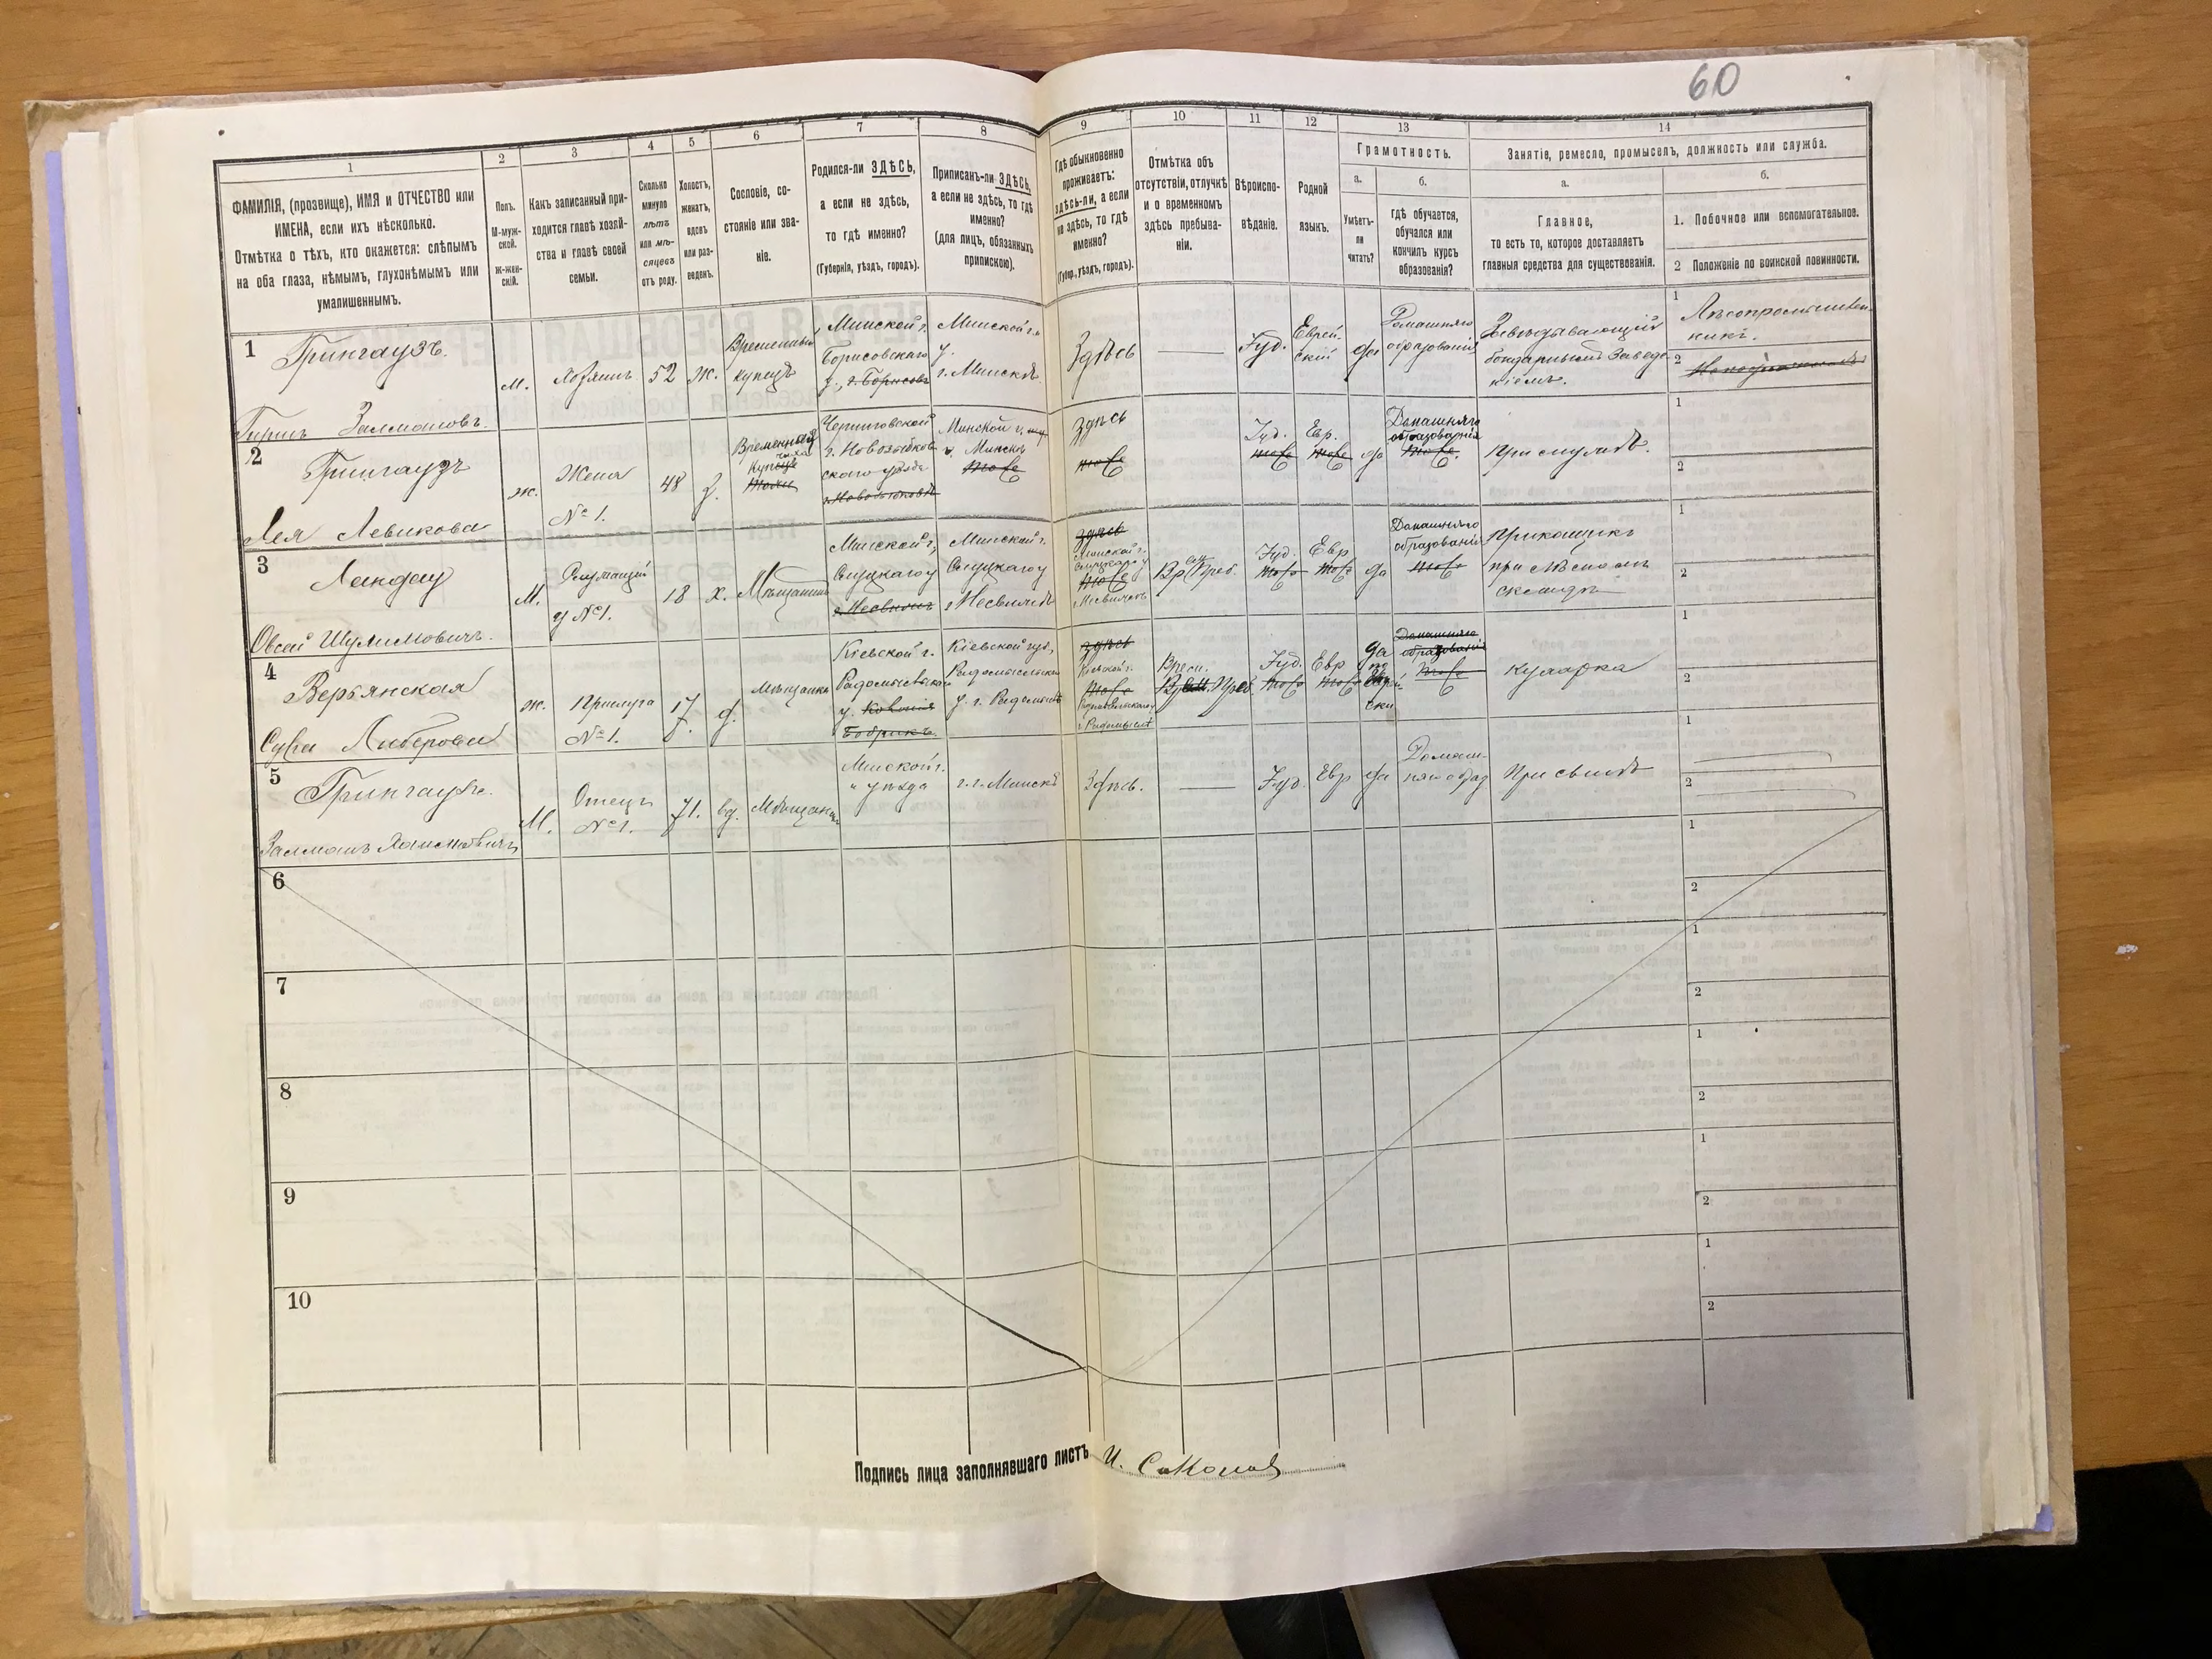 60
1
2
3
4
5
6
7
8
9
10
11
12
13
14
ФАМИЛІЯ, (прозвище), ИМЯ и ОТЧЕСТВО или
ИМЕНА, если ихъ нѣсколько.
Отмѣтка о тѣхъ, кто окажется: слѣпымъ
на оба глаза, нѣмымъ, глухонѣмымъ или
умалишеннымъ.
Полъ.
М-муж-
ской.
Ж-жен-
скій.
Какъ записанный при-
ходится главѣ хозяй-
ства и главѣ своей
семьи.
Сколько
минуло
лѣтъ
или мѣ-
сяцевъ
отъ роду.
Холостъ,
женатъ,
вдовъ
или раз-
веденъ.
Сословіе, со-
стояніе или зва-
ніе.
Родился-ли ЗДѢСЬ,
а если не здѣсь,
то гдѣ именно?
(Губернія, уѣздъ, городъ).
Приписанъ-ли ЗДѢСЬ,
а если не здѣсь, то гдѣ
именно?
(для лицъ, обязанныхъ
припискою).
Гдѣ обыкновенно
проживаетъ:
здѣсь-ли, а если
не здѣсь, то гдѣ
именно?
(Губер., уѣздъ, городъ).
Отмѣтка объ
отсутствіи, отлучкѣ
и о временномъ
здѣсь пребыва-
ніи.
Вѣроиспо-
вѣданіе.
Родной
языкъ.
Грамотность.
а.
Умѣетъ-
ли
читать?
б.
гдѣ обучается,
обучался или
кончилъ курсъ
образованія?
Занятіе, ремесло, промыселъ, должность или служба.
а.
Главное,
то есть то, которое доставляетъ
главныя средства для существованія.
б.
1. Побочное или вспомогательное.
2 Положеніе по воинской повинности.
1
Грингаузъ.
Залмановъ.
м.
Хозяинъ
52
ж.
Временный
купецъ
Минской г.
Борисовскаго
у., г. Борисовъ
Минской г.
у.
г. Минскъ
Здѣсь
Іуд.
Еврей-
скій
да
Домашняго
образованія
Завѣдывающій
бондарнымъ Заведе-
ніемъ.
1
Лѣсопромышлен-
никъ.
2
2
Грингаузъ
Лея Левикова
ж.
Жена
№ 1.
48
з.
Временный
Купчиха
Черниговской
г. Новозыбков-
скаго уѣзда
г. Новозыбковъ
Минской г.
г. Минскъ
тоже
здѣсь
тоже
Іуд.
тоже
Евр.
тоже
да
Домашняго
образованія
тоже.
При мужѣ.
1
2
3
Ландау
Овсей Шулимовичъ.
М.
у №1.
18
х.
Мѣщанинъ
Минской г.,
Слуцкаго у
г. Несвижъ
Минской г.
Слуцкаго у
г. Несвижъ
здѣсь
Минской г.
Слуцкаго у
тоже
г. Несвижъ
Іуд.
тоже
Евр
тоже
да
Домашняго
образованія
тоже
Прикащикъ
при лѣсномъ
складѣ
1
2
4
Верьянская
ж.
Прислуга
№ 1.
17
д.
Мѣщанка
Кіевской г.
Радомысльск.
у.
Кіевской губ.,
Радомысльск.
у. г. Радомысль
здѣсь
Кіевской г.
тоже
Радомысльскаго у
г. Радомысль
Врем.
Іуд.
тоже
Евр
тоже
да
по
еврей-
ски
Домашняго
образованія
тоже
Кухарка
1
2
5
Грингаузъ.
Залманъ Хаимовичъ
М.
Отецъ
№ 1.
71.
вд.
Мѣщанинъ
Минской г.
" уѣзда
г. Минскъ
Здѣсь.
Іуд.
Евр
да
Домаш-
няго образ
При сынѣ
1
2
6
1
2
7
1
2
8
1
2
9
1
2
10
1
2
Подпись лица заполнявшаго листъ